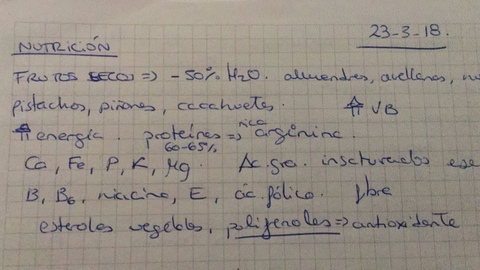 23-3-18.
NUTRICIÓN
FRUTOS SECOS => -50% H2O. almendras, avellanas,
pistachos, piñones, cacahuetes. ⇑ VB
⇑ energía. proteínas => rica arginina.
60-65%
Ca, Fe, P, K, Mg. Ac. gra. insaturados ese
B, B6, niacina, E, ác. fólico. fbra
esteroles vegetales, polifenoles => antioxidante